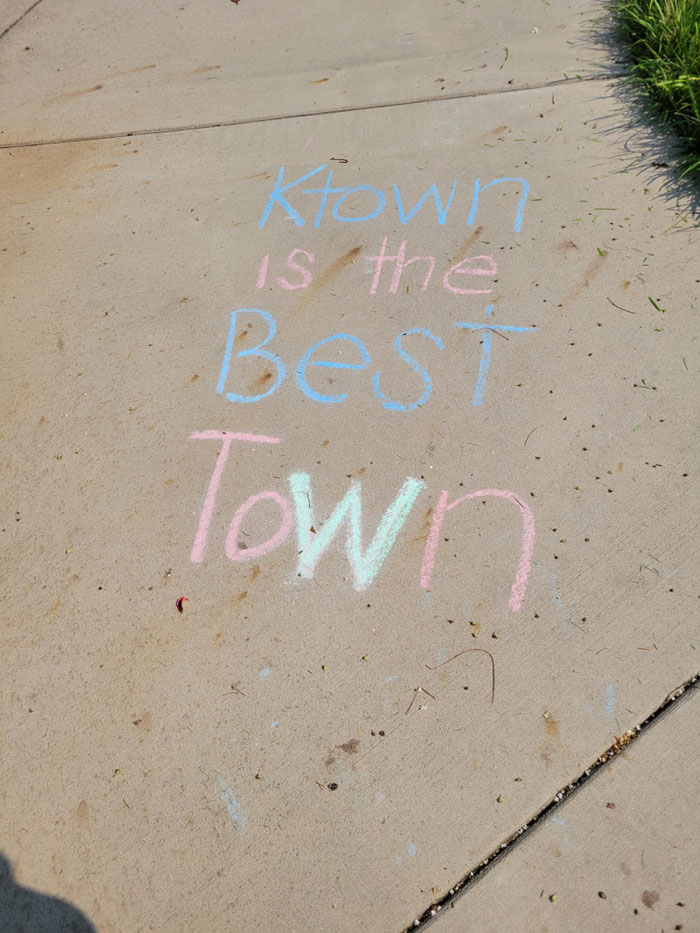 Ktown
is the
BesT
Town